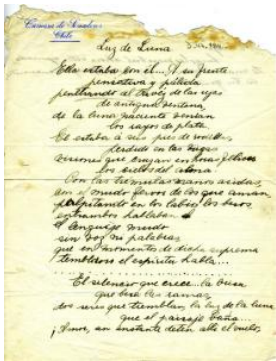 Camara de Senadores
Chile
Luz de Luna
Ella estaba con él... A su frente
pensativa y pálida
penetrando al través de las rejas
de antigua ventana,
de la luna naciente venían
los rayos de plata.
El estaba á sus pies de rodillas,
perdido en las vagas
visiones que cruzan en horas felices
los cielos del alma.
Con las trémulas manos asidas,
con el mudo fervor de los que aman,
palpitando en los labios los besos
entrambos hablaban
el lenguaje mudo
sin voz ni palabras
que en momentos de dicha suprema
tembloroso el espíritu habla...
El silencio que crece... la brisa
que besa las ramas,
dos seres que tiemblan, la luz de la luna
que el paisaje baña...
¡Amor, un instante detén allí el vuelo,